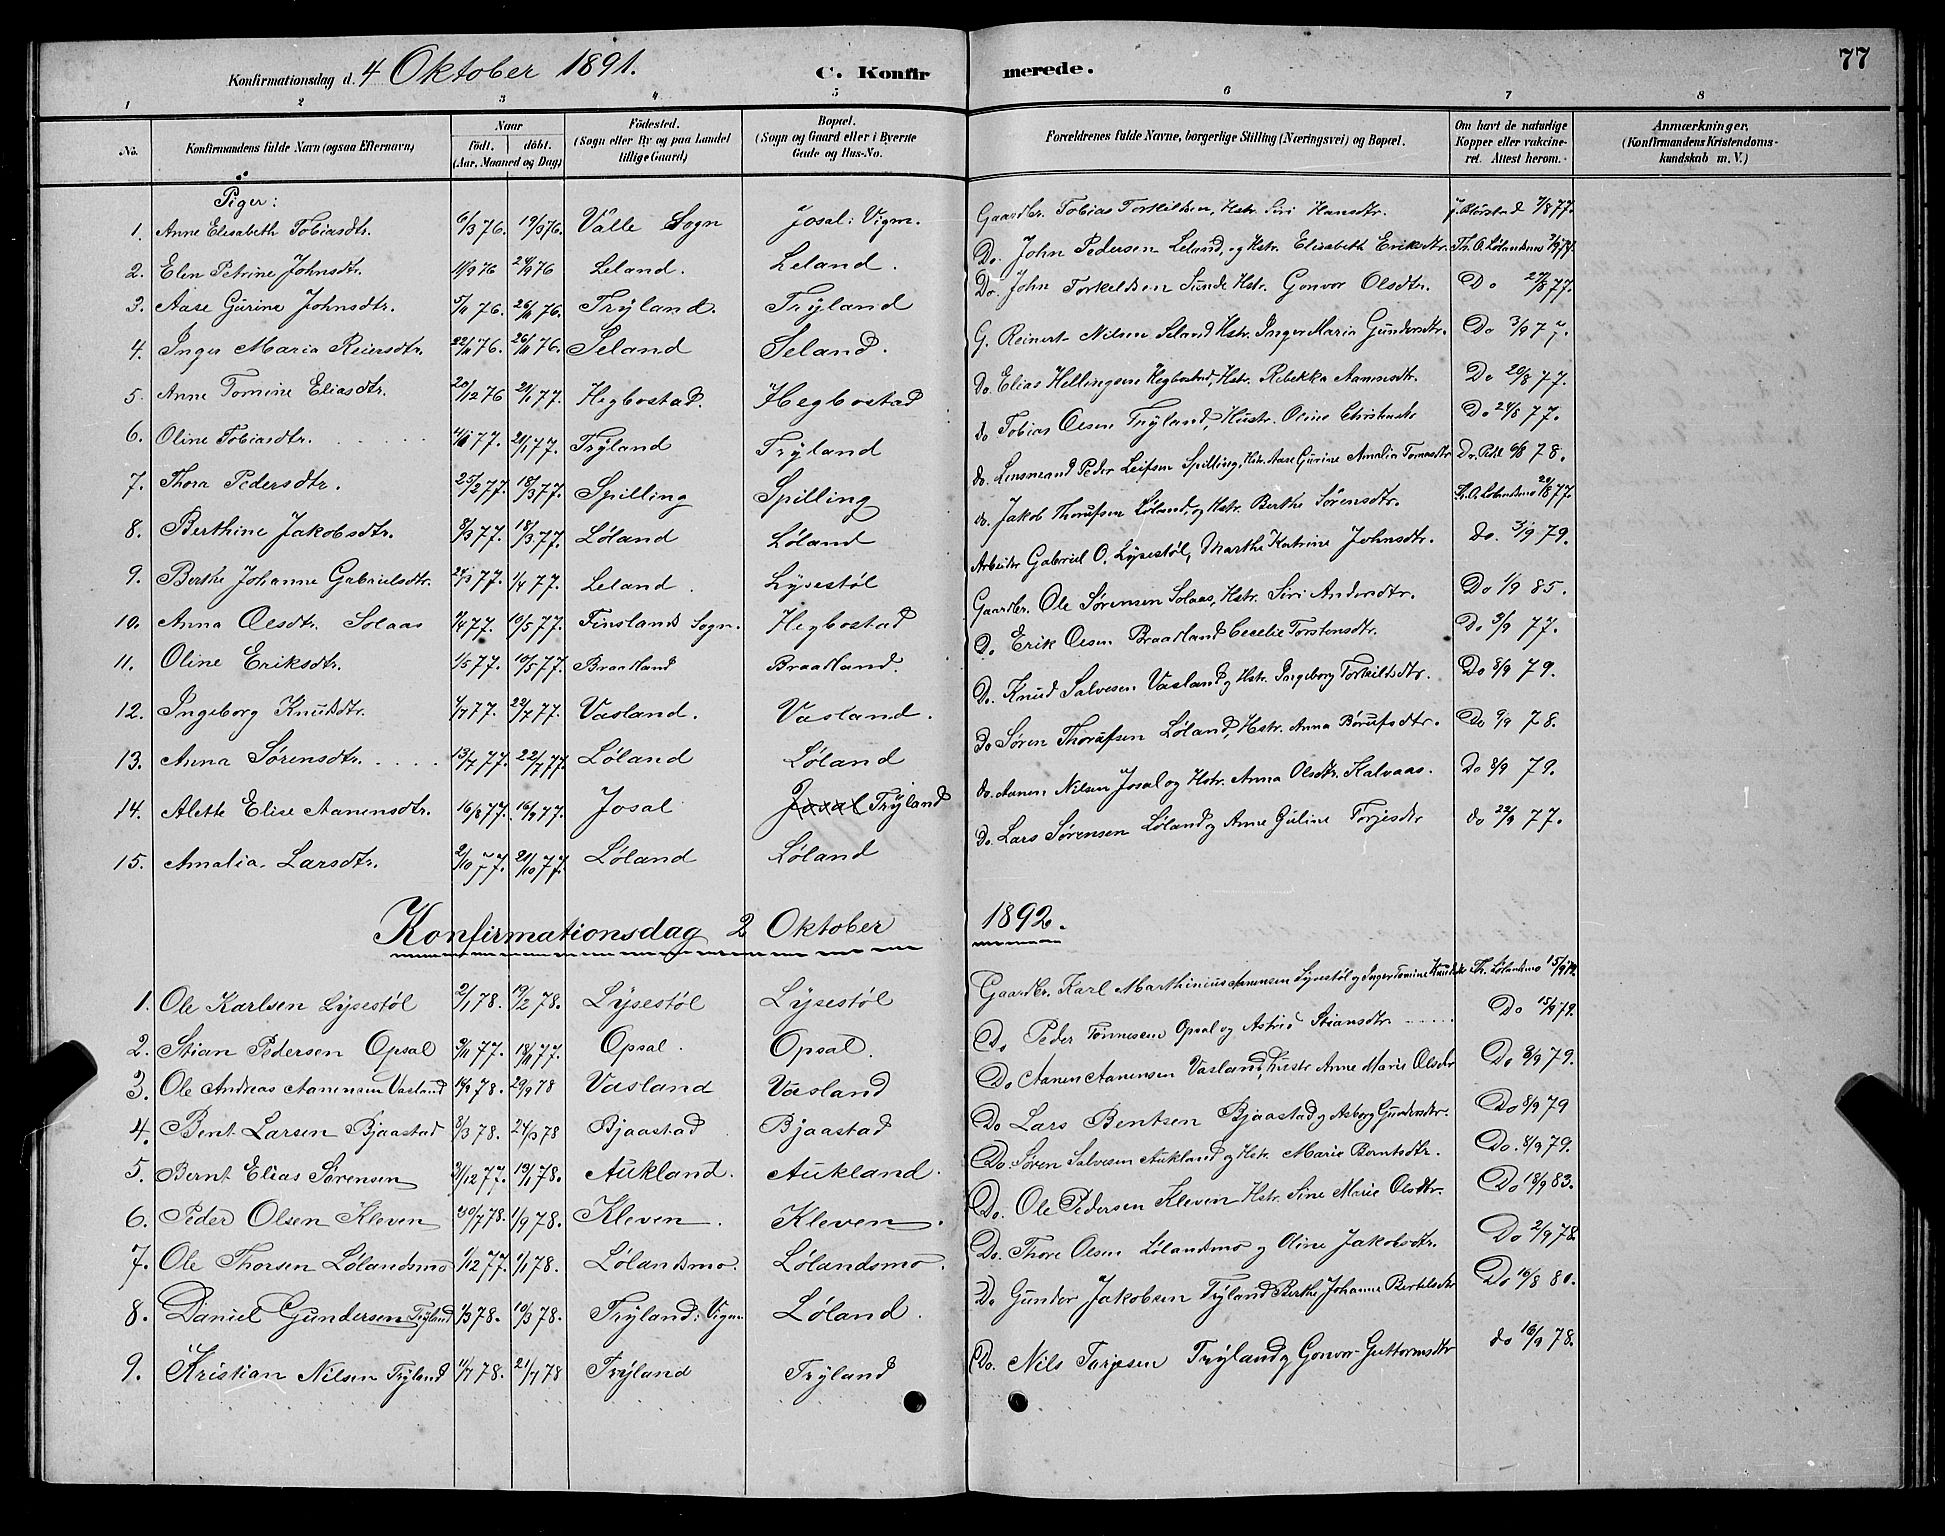 77
Konfirmationsdag d. 4 Oktober 1891. C. Konfirmerede.
1 2 3 4 5 6 7 8
No. Konfirmandens fulde Navn (ogsaa Efternavn) Naar født. døbt. (Aar, Maaned og Dag) Födested. (Sogn eller By og paa Landet tillige Gaard) Bopæl. (Sogn og Gaard eller i Byerne Gade og Hus-No. Forældrenes fulde Navne, borgerlige Stilling (Næringsvei) og Bopæl. Om havt de naturlige Kopper eller vakcineret. Attest herom. Anmærkninger. (Konfirmandens Kristendomskundskab m. V.)
Piger:
1. Anne Elisabeth Tobiasdtr. 6/3 76. 19/3 76. Valle Sogn Josal: Vigm. Gaardbr. Tobias Torkildsen, Hstr. Siri Hansdtr. 7/8 77.
2. Elen Petrine Johnsdtr. 11/9 76 24/9 76 Leland. Leland. Do. John Pedersen Leland, og Hstr. Elisabeth Eriksdtr. Th. O. Lølandsmo
3. Aase Gurine Johnsdtr. 5/11 76. 26/11 76. Trÿland. Trÿland Do. John Torkildsen Sunde Hstr. Gonvor Olsdtr. Do 27/8 77.
4. Inger Maria Reiersdtr. 22/11 76. 26/11 76. Seland Seland. G. Reinert Nilsen Seland Hstr. Inger Maria Gundersdtr. Do 3/9 77.
5. Anne Tomine Eliasdtr. 20/12 76 21/1 77. Hegbostad. Hegbostad Do. Elias Hellingsen Hegbostad, Hstr. Rebekka Aanensdtr. Do 20/8 77.
6. Oline Tobiasdtr. 4/1 77. 21/1 77. Trÿland Trÿland do. Tobias Olsen Trÿland, Hustr. Oline Do 24/8 77.
7. Thora Pedersdtr. 25/2 77. 18/3 77. Spilling Spilling do. Lensmand Peder Leifsen Spilling, Hstr. Aase Gurine Amalia Tomasdtr 6/8 78.
8. Berthine Jakobsdtr. 8/3 77. 18/3 77. Løland Løland do. Jakob Thorufsen Løland, og Hstr. Berthe Sörensdtr. Th. O. Lølandsmo 20/8 77.
9. Berthe Johanne Gabrielsdtr. 24/3 77. 1/4 77. Leland. Lÿsestöl Arbeider Gabriel O. Lÿsestöl, Marthe Katrine Johnsdtr. do. 3/9 79.
10. Anna Olsdtr. Solaas 77. 10/5 77. Finslands Sogn. Hegbostad Gaardbr. Ole Sörensen Solaas, Hstr. Siri Andersdtr. Do 1/9 85.
11. Oline Eriksdtr. 1/5 77. 10/5 77. Braadland Braadland. Do Erik Olsen Braadland Cecelie Torstensdtr. Do 3/9 77.
12. Ingeborg Knudsdtr. 77. 22/7 77. Vasland. Vasland. Do. Knud Salvesen Vasland og Hstr. Ingeborg Torkildsdtr. Do 8/9 79.
13. Anna Sørensdtr. 13/7 77. 22/7 77. Løland Løland Do Søren Thorufsen Løland, Hstr. Anna Börufsdtr. Do 9/9 78.
14. Alette Elise Aanensdtr. 16/8 77. 16/9 77. Josal Josal Trÿland do. Aanen Nilsen Josal og Hstr. Anna Olsdtr. Kalvaas. Do 8/9 79.
15. Amalia Larsdtr. 2/10 77. 21/10 77. Løland Løland Do. Lars Sørensen Løland og Anne Guline Torjesdtr do 22/9 77.
Konfirmationsdag 2 Oktober 1892.
1. Ole Karlsen Lÿsestøl 2/1 78. 19/2 78. Lÿsestøl Lÿsestøl Gaardbr. Karl Marthinius Aanensen Lÿsestøl og Inger Tomine Th. Lølandsmo 15/9 79.
2. Stian Pedersen Opsal 9/11 77. 18/11 77. Opsal. Opsal. Do Peder Tønnesen Opsal og Astrid Stiansdtr. Do 15/9 79.
3. Ole Andreas Aanensen Vasland 78. 29/9 78 Vasland Vasland Do Aanen Aanensen Vasland, Hustr Anne Marie Olsdtr Do 8/9 79.
4. Bent Larsen Bjaastad 8/3 78. 24/3 78 Bjaastad Bjaastad Do Lars Bentsen Bjaastad og Asborg Gundersdtr. Do 8/9 79
5. Bernt Elias Sørensen 31/12 77. 19/1 78. Aukland. Aukland. Do. Søren Salvesen Aukland og Hstr. Marie Berntsdtr. Do. 8/9 79.
6. Peder Olsen Kleven 30/7 78. 1/9 78. Kleven. Kleven. Do. Ole Pedersen Kleven Hstr. Sine Marie Olsdtr. Do 18/9 83.
7. Ole Thorsen Lølandsmo 1/12 77. 1/1 78. Lølandsmo. Lølandsmo. Do. Thore Olsen Lølandsmo og Oline Jakobsdtr. Do 2/9 78.
8. Daniel Gundersen Trÿland 1/3 78. 10/3 78. Trÿland: Vigm Løland. Do Gunder Jakobsen Trÿland Berthe Johanne Bertelsdtr Do 16/8 80.
9. Kristian Nilsen Trÿland 11/7 78. 21/7 78 Trÿland Trÿland Do. Nils Tarjesen Trÿland og Gonvor Guttormsdtr do 16/9 78.